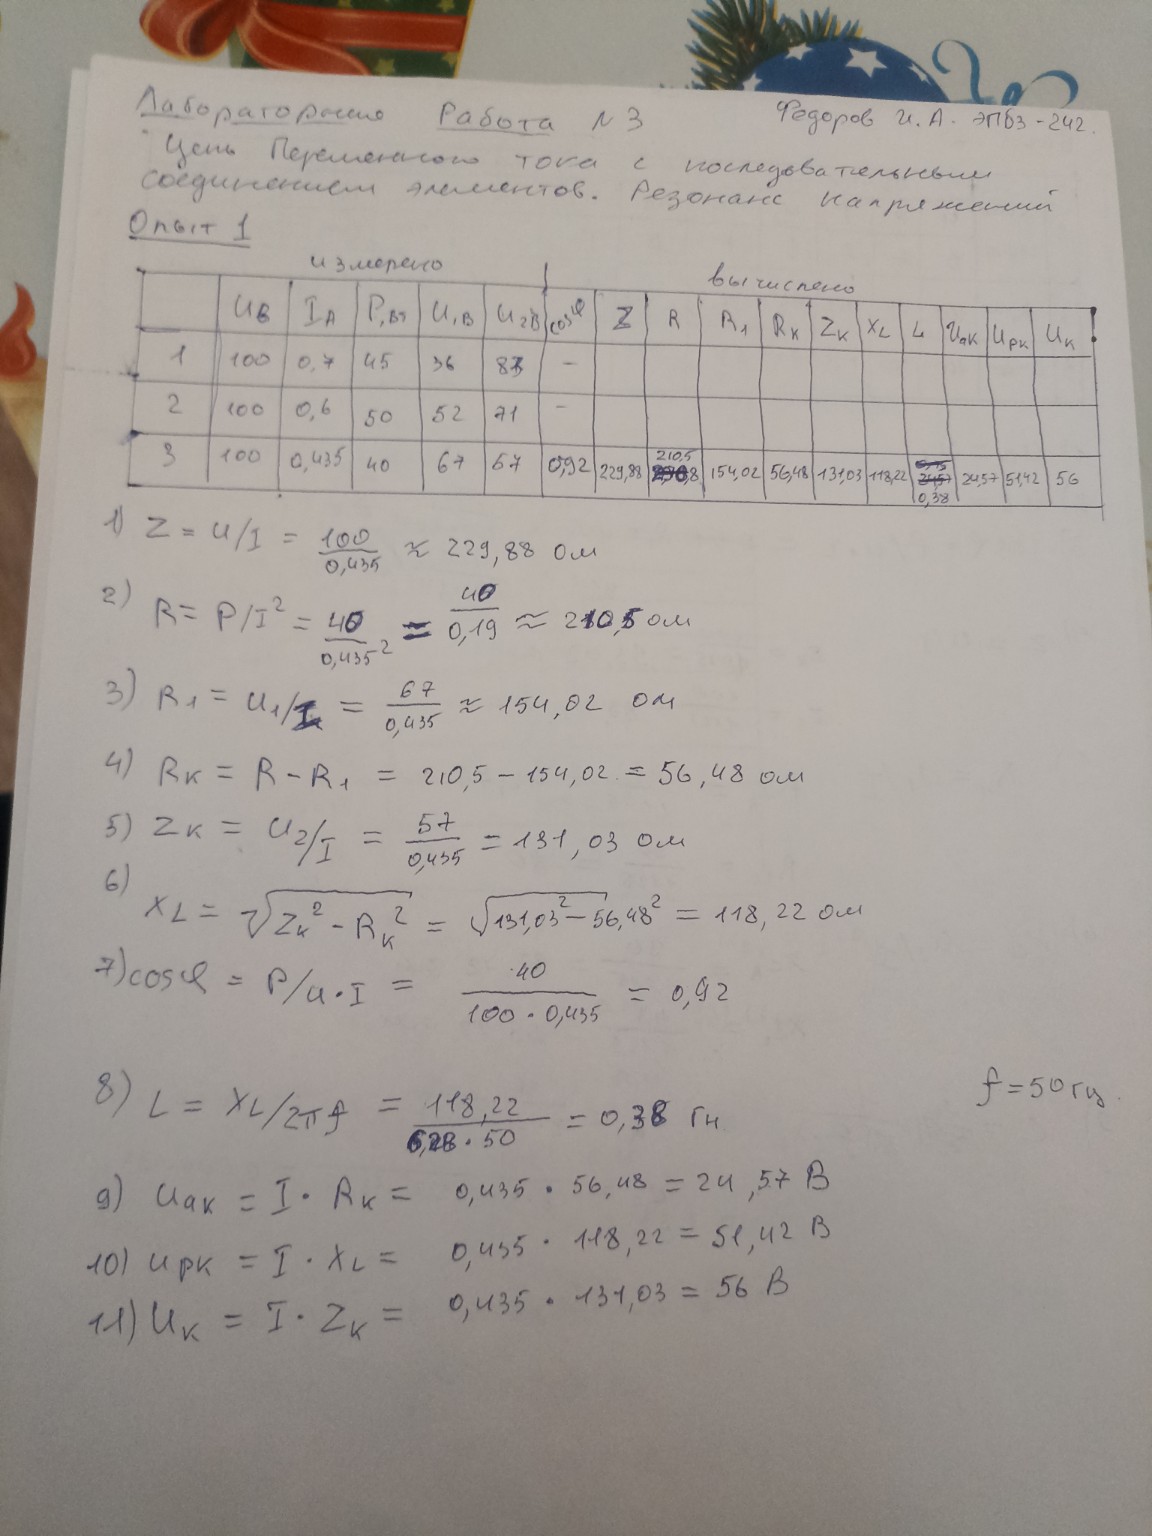 Лабораторная Работа №3 Федоров И. А. ЭПБЗ-242.
Цепь Переменного тока с последовательным
соединением элементов. Резонанс напряжений
Опыт 1
измерено вычислено
UВ IА P,Вт U1В U2В cosφ Z R R1 Rк Zк XL L Uак Uрк Uк
1 100 0,7 45 36 83 –
2 100 0,6 50 52 71 –
3 100 0,435 40 67 57 0,92 229,88 210,5 154,02 56,48 131,03 118,22 0,38 24,57 51,42 56
1) Z = U/I = 100/0,435 ≈ 229,88 ом
2) R = P/I² = 40/0,435² = 40/0,19 ≈ 210,5 ом
3) R1 = U1/I = 67/0,435 ≈ 154,02 ом
4) Rк = R - R1 = 210,5 - 154,02 = 56,48 ом
5) Zк = U2/I = 57/0,435 = 131,03 ом
6) XL = √Zк² - Rк² = √131,03² - 56,48² = 118,22 ом
7) cosφ = P/U·I = 40/100·0,435 = 0,92
8) L = XL/2πf = 118,22/6,28·50 = 0,38 Гн f = 50 гц.
9) Uак = I · Rк = 0,435 · 56,48 = 24,57 В
10) Uрк = I · XL = 0,435 · 118,22 = 51,42 В
11) Uк = I · Zк = 0,435 · 131,03 = 56 В